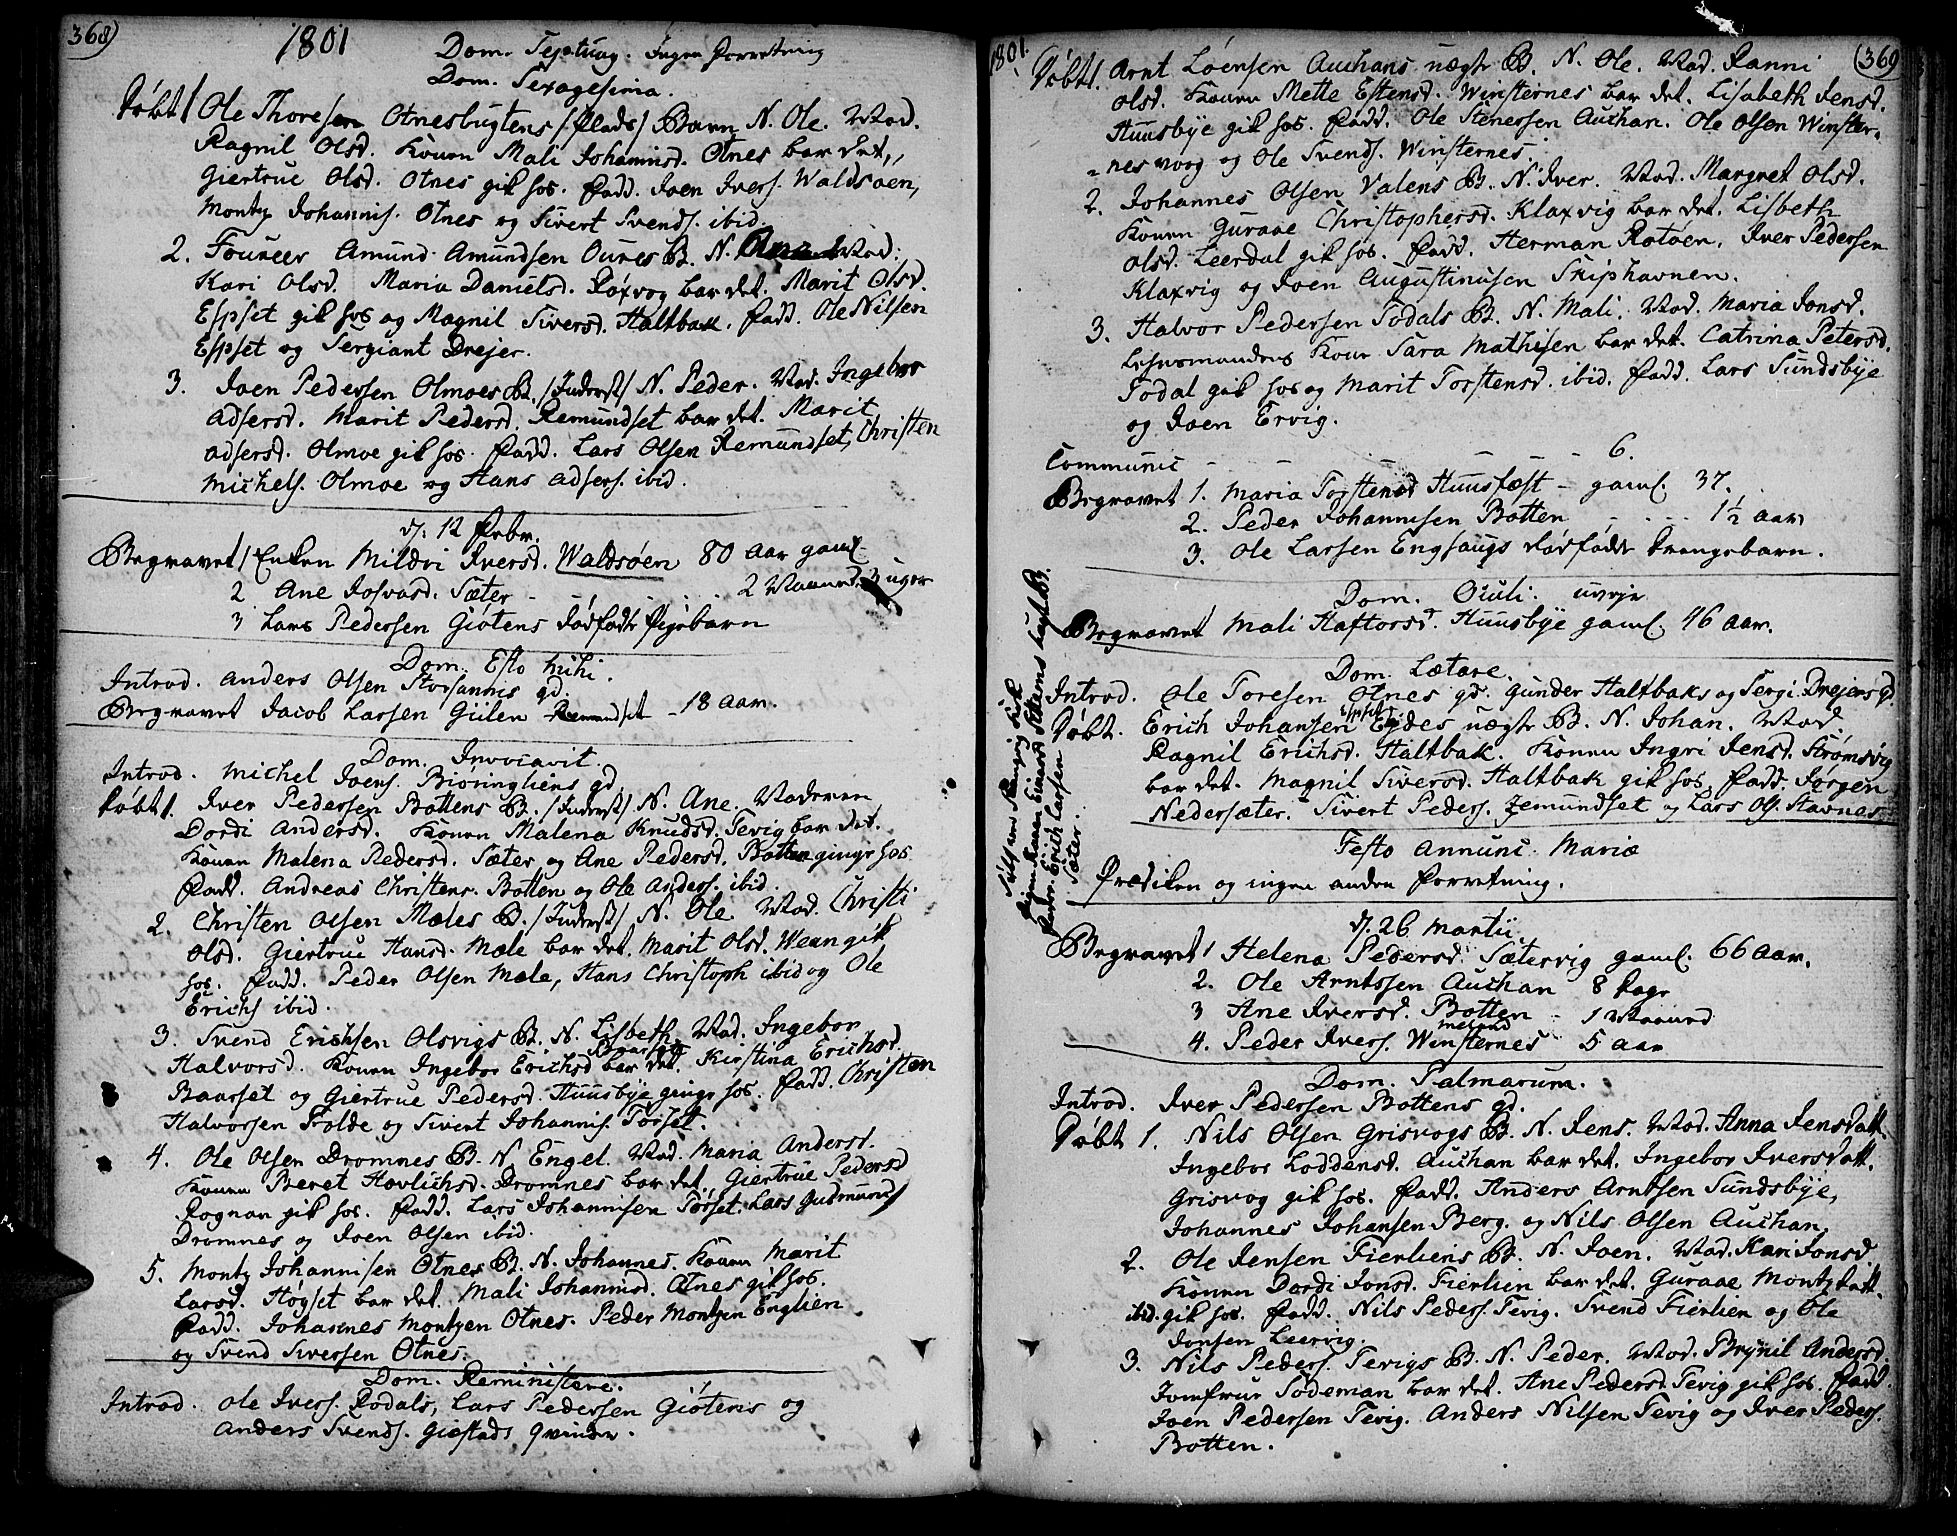 368)
1801
Dom. Septuag. Ingen Forretning
Dom. Sexagesima.
Døbt 1 Ole Thoresen Otnesbugtens /Plads/ Barn N. Ole. Mod.
Ragnil Olsd. Konen Mali Johannisd. Otnes bar det,
Giertrue Olsd. Otnes gik hos. Fadd. Joen Ivers. Waldsøen,
Montz Johannis. Otnes og Sivert Svends. ibid.
2. Foureer Amund Amundsen Oures B. N. Mod.
Kari Olsd. Maria Danielsd. bar det. Marit Olsd.
Espset gik hos og Magnil Siversd. Haltbak. Fadd. Ole Nilsen
Espset og Sergiant Drejer.
3. Joen Pedersen Olmoes B. /Inderst/ N. Peder. Mod. Ingebor
Adsersd. Marit Pedersd. Remundset bar det. Marit
Adsersd. Olmoe gik hos. Fadd. Lars Olsen Remundset, Christen
Michels. Olmoe og Hans Adsers. ibid.
d. 12 Febr.
Begravet 1 Enken Mildri Iversd. Waldsøen 80 Aar gaml.
2 Ane Josvasd. Sæter - - - 2 Maaned. 3 uger
3 Lars Pedersen Giøtens dødfødte Pigebarn
Dom. Esto mihi.
Introd. Anders Olsen Storsannis qd.
Begravet Jacob Larsen Giilen Remundset - 18 Aar.
Dom. Invocavit.
Introd. Michel Joens. Biøringliens qd.
Døbt 1. Iver Pedersen Bottens B. /Inderst/ N. Ane. Moderen
Dordi Andersd. Konen Malena Knudsd. Tevig bar det.
Konen Malena Pedersd. Sæter og Ane Pedersd. Botten ginge hos
Fadd. Andreas Christens. Botten og Ole Anders. ibid.
2. Christen Olsen Mæles B. /Inderst/ N. Ole. Mod. Christi
Olsd. Giertrue Hansd. Mæle bar det. Marit Olsd. Wean gik
hos. Fadd. Peder Olsen Mæle, Hans Christoph ibid og Ole
Erichs ibid.
3. Svend Erichsen Olsvigs B. N. Lisbeth. Mod. Ingebor
Halvorsd. Konen Ingebor Erichsd bar det. Kirstina Erichsd.
Baarset og Giertrue Pedersd. Huusbye ginge hos. Fadd. Christen
Halvorsen Folde og Sivert Johannis. Torset.
4. Ole Olsen Dromnes B. N. Engel. Mod. Maria Andersd.
Konen Beret Hovlichsd. Dromnes bar det. Giertrue Pedersd
Rognan gik hos. Fadd. Lars Johannisen Torset. Lars Gudmunds
Dromnes og Joen Olsen ibid.
5. Montz Johannisen Otnes B. N. Johannes. Konen Marit
Larsd. Høgset bar det. Mali Johannisd. Otnes gik hos.
Fadd. Johannes Montzen Otnes. Peder Montzen Englien
og Svend Siversen Otnes.
Dom. Reministere.
Introd. Ole Ivers. Rodals, Lars Pedersen Giøtens og
Anders Svends. Giøstads Qvinder.
1801.
(369
Døbt 1. Arnt Loensen Auchans uægte B. N. Ole. Mod. Ranni
Olsd. Konen Mette Estensd. Winsternes bar det. Lisabeth Jensd.
Huusbye gik hos. Fadd. Ole Stenersen Auchan. Ole Olsen Winster-
nes vog og Ole Svends. Winsternes.
2. Johannes Olsen Valens B. N. Iver. Mod. Margret Olsd.
Konen Guraae Christophersd. Klaxvig bar det. Lisbeth
Olsd. Leerdal gik hos. Fadd. Herman Rotøen, Iver Pedersen
Klaxvig og Joen Augustinusen Skiphavnen.
3. Halvor Pedersen Todals B. N. Mali. Mod. Maria Jonsd.
Lehnsmandens Kone Sara Mathisen bar det. Catrina Petersd.
Todal gik hos og Marit Torstensd. ibid. Fadd. Lars Sundsbye
og Joen Ervig.
Communic - - - - - 6.
Begravet 1. Maria Torstensd Huusfæst - gaml. 37.
2. Peder Johannisen Botten - - - 1½ Aar
3. Ole Larsen Engsaugs dødfødte Drengebarn.
Dom. Oculi. uveje
Begravet Mali Haftorsd. Huusbye gaml. 46 Aar.
Dom. Lætare.
Introd. Ole Toresen Otnes qd. Gunder Haltbaks og Sergi. Drejers qd
Espset
Døbt. Erich Johansen Eydes uægte B. N. Johan. Mod.
Ragnil Erichsd. Haltbak. Konen Ingri Jensd. Strømsvig
bar det. Magnil Siversd. Haltbak gik hos. Fadd. Jørgen
Nedersæter. Sivert Peders. Remundset og Lars Ols. Stavnes
Festo Annunc. Mariæ
Prædiken og ingen anden Forretning.
Einard
Fadder. Erich Larsen
Sæter.
d. 26 Martii
Begravet 1 Helena Pedersd. Sætervig gaml. 66 Aar.
2. Ole Arntssen Auchan 8 Dage
3 Ane Iversd. Botten - 1 Maaned
4. Peder Ivers. Winsternes 5 Aar
Dom. Palmarum.
Introd. Iver Pedersen Bottens qd.
Døbt 1. Nils Olsen Grisvogs B. N. Jens. Mod. Anna Jensdatt.
Ingebor Loddensd. Auchan bar det. Ingebor Iversdatt.
Grisvog gik hos. Fadd. Anders Arntsen Sundsbye,
Johannes Johansen Berg. og Nils Olsen Auchan.
2. Ole Jensen Fierliens B. N. Joen. Mod. Kari Jonsd.
Konen Dordi Jonsd. Fierlien bar det. Guraae Montzdatt.
ibid. gik hos. Fadd. Nils Peders. Tevig. Svend Fierlien og Ole
Jonsen Leervig.
3. Nils Peders. Tevigs B. N. Peder. Mod. Brynil Andersd.
Jomfrue Sodeman bar det. Ane Pedersd Tevig gik hos. Fadd.
Joen Pedersen Tevig. Anders Nilsen Tevig og Iver Peders.
Botten.